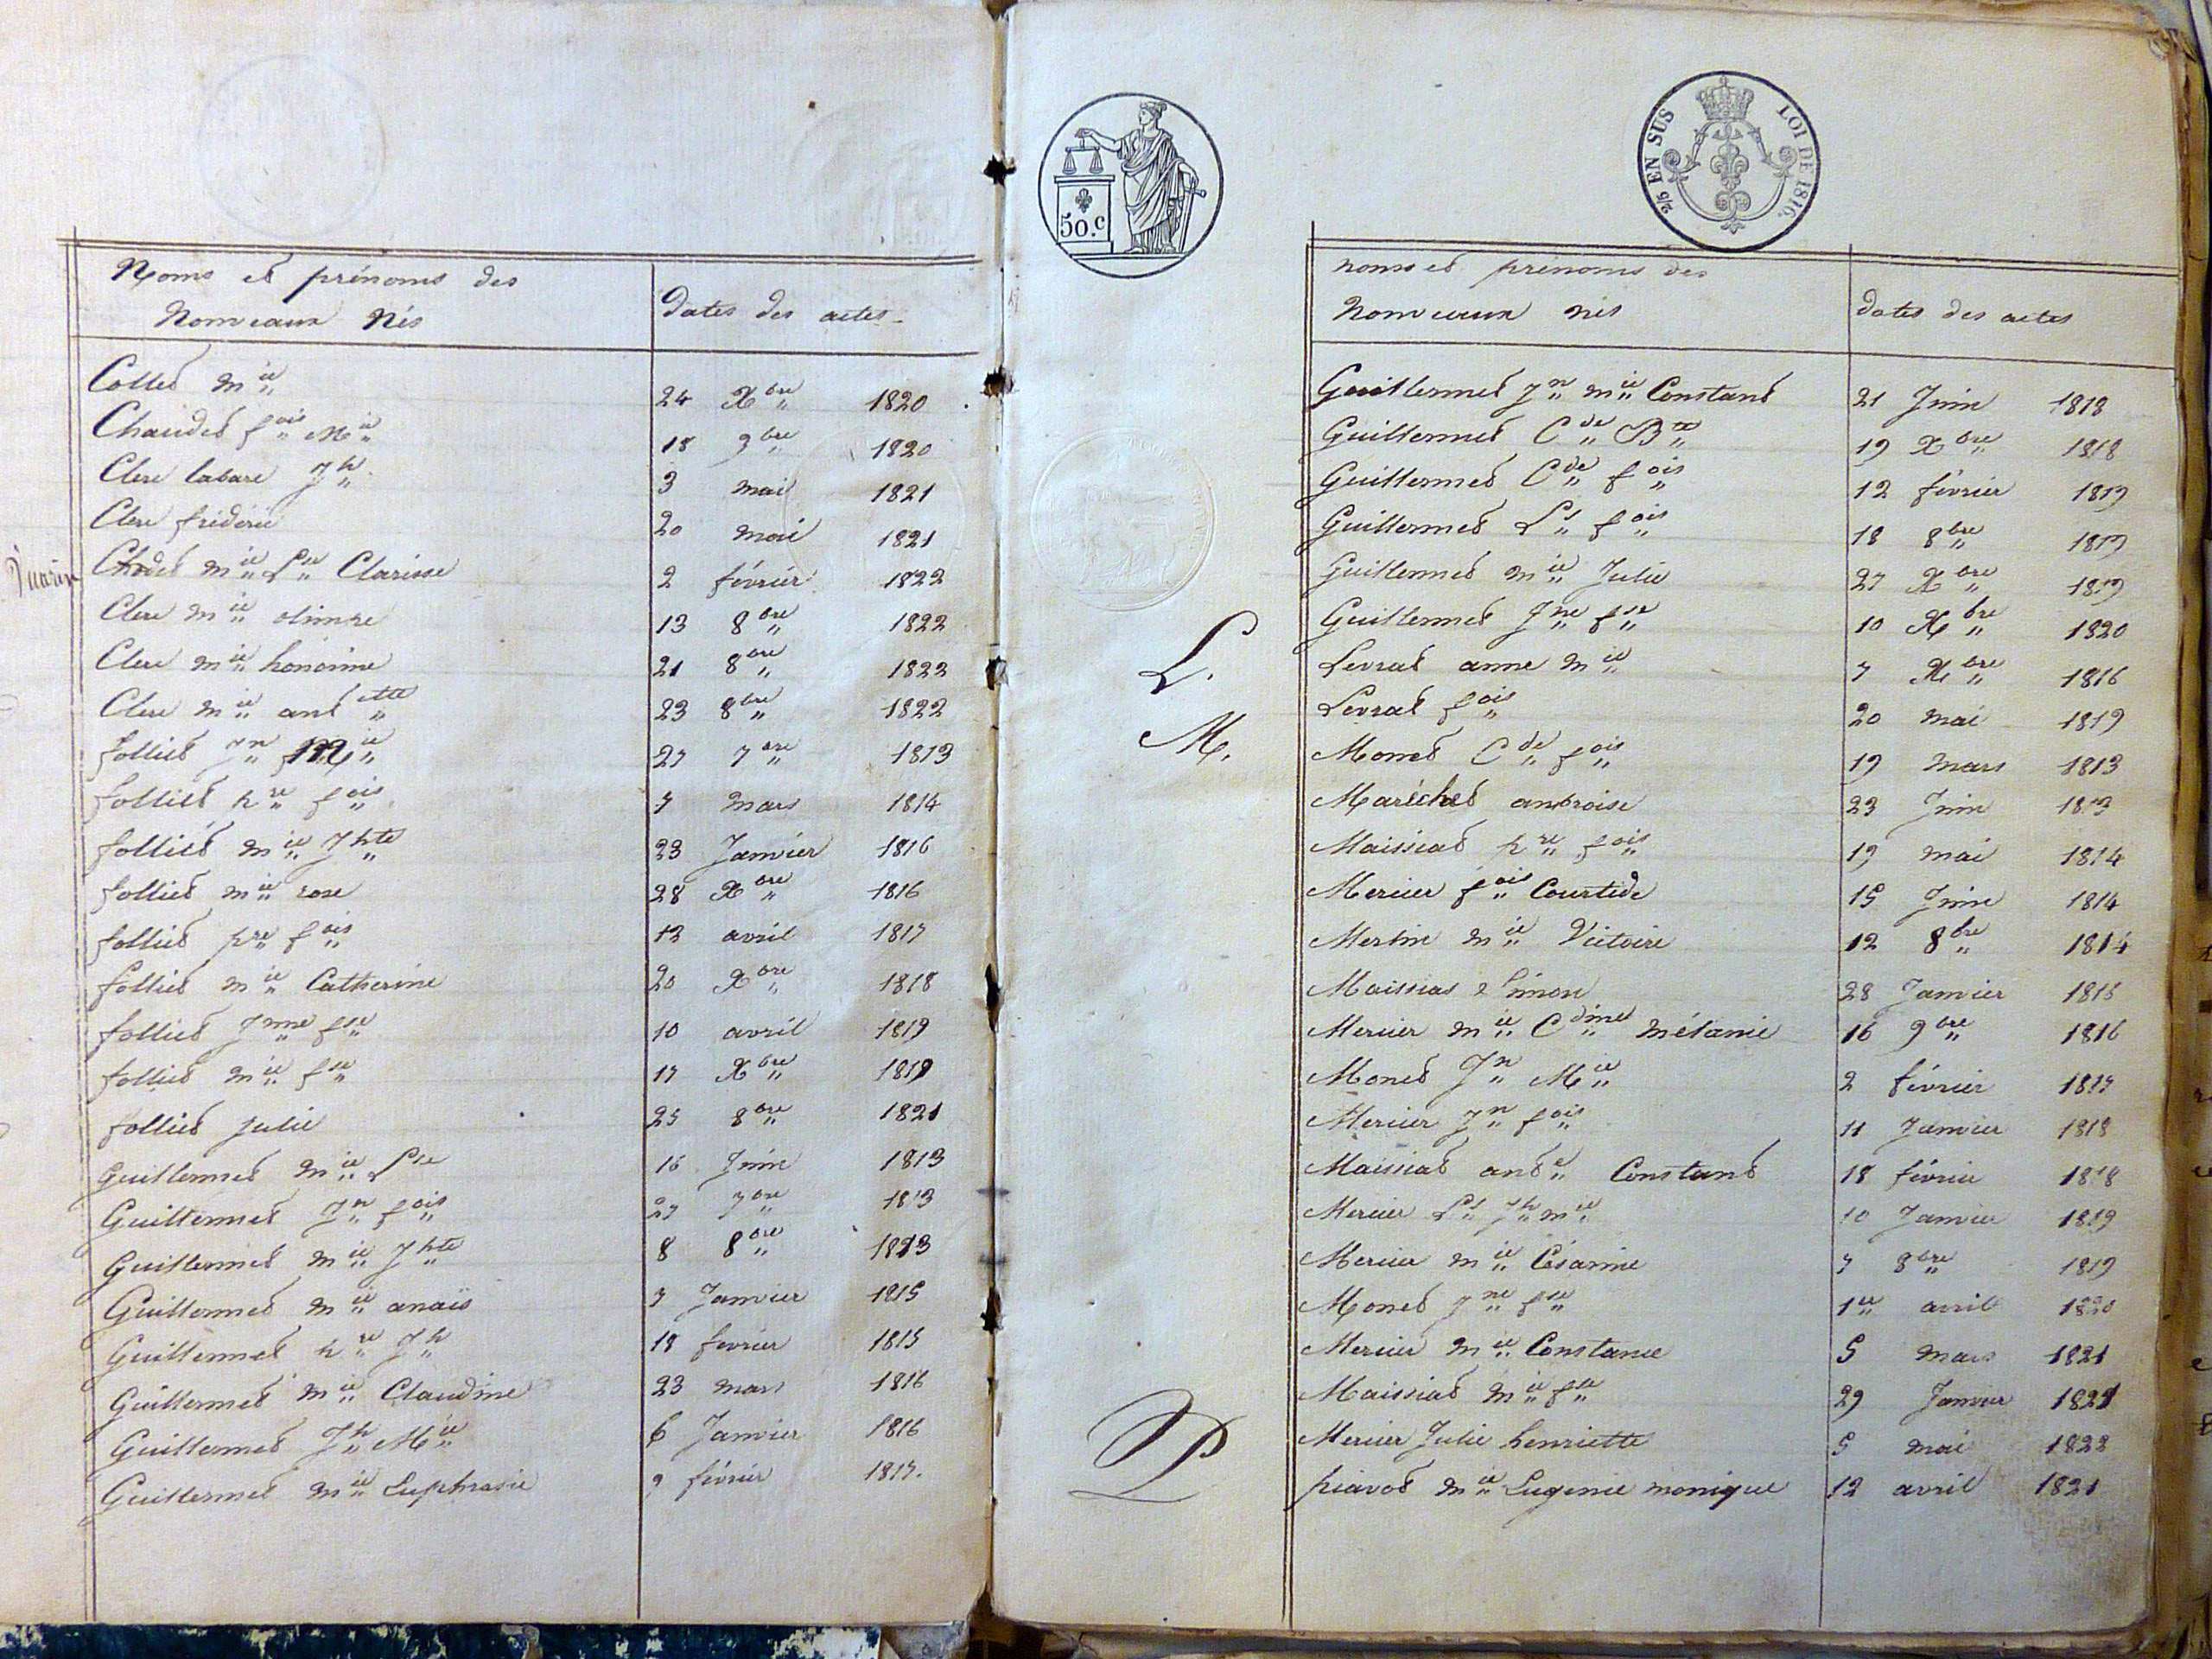 Noms et prénoms des
Nouveaux Nés
dates des actes
Collet mie 24 Xbre 1820
Chaudet fois Mie 18 9bre 1820
Clerc labare Jh 3 mai 1821
Clerc fréderic 20 mai 1821
mie Lse Clarisse 2 février 1822
Clerc mie olimpe 13 8bre 1822
Clerc mie honorine 21 8bre 1822
Clerc mie antette 23 8bre 1822
folliet Jn Mie 27 7bre 1813
folliet pre fois 7 mars 1814
folliet mie Jhte 23 Janvier 1816
folliet mie rose 28 Xbre 1816
folliet pre fois 13 avril 1817
folliet mie Catherine 20 Xbre 1818
folliet Jnne fse 10 avril 1819
folliet mie fse 17 Xbre 1819
folliet julie 25 8bre 1821
Guillermet mie Lse 16 Juin 1813
Guillermet Jn fois 27 7bre 1813
Guillermet mie Jhte 8 8bre 1813
Guillermet mie anaïs 7 Janvier 1815
Guillermet pre Jh 18 fevrier 1815
Guillermet mie Claudine 23 mars 1816
Guillermet Jh Mie 6 Janvier 1816
Guillermet mie Euphrasie 9 février 1817.
50.c
2/5 EN SUS LOI DE 1816.
noms et prénoms des
Nouveaux nés
dates des actes
Guillermet Jn mie Constant 21 Juin 1818
Guillermet Cde Bte 19 Xbre 1818
Guillermet Cde fois 12 février 1819
Guillermet Ls fois 18 8bre 1819
Guillermet mie Julie 27 Xbre 1819
Guillermet Jne fse 10 Xbre 1820
L. Levrat anne mie 7 Xbre 1816
Levrat fois 20 mai 1819
M. Monet Cde fois 19 mars 1813
Maréchet ambroise 23 Juin 1813
Maissiat pre fois 19 mai 1814
Mercier fois Courtide 15 Juin 1814
Merlin mie Victoire 12 8bre 1814
Maissias Simon 28 Janvier 1815
Mercier mie Cdine mélanie 16 9bre 1816
Monet Jn Mie 2 février 1817
Mercier Jn fois 11 Janvier 1818
Maissiat andé Constant 18 février 1818
Mercier Ls Jh mie 10 Janvier 1819
Mercier mie Césarine 7 8bre 1819
Monet Jne fse 1er avril 1820
Mercier mie Constance 5 mars 1821
Maissiat mie fse 29 Janvier 1821
Mercier Julie henriette 5 mai 1822
P piavot mie Eugenie monique 12 avril 1821